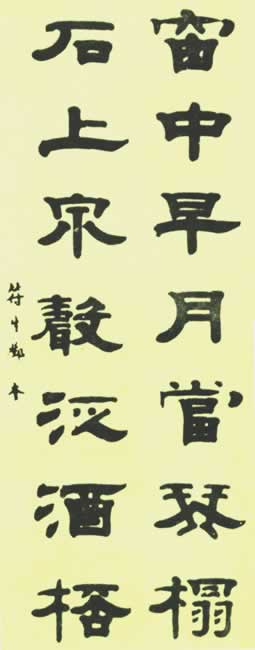 窗中早月當琴榻
石上泉聲泛酒桮
符生鄭